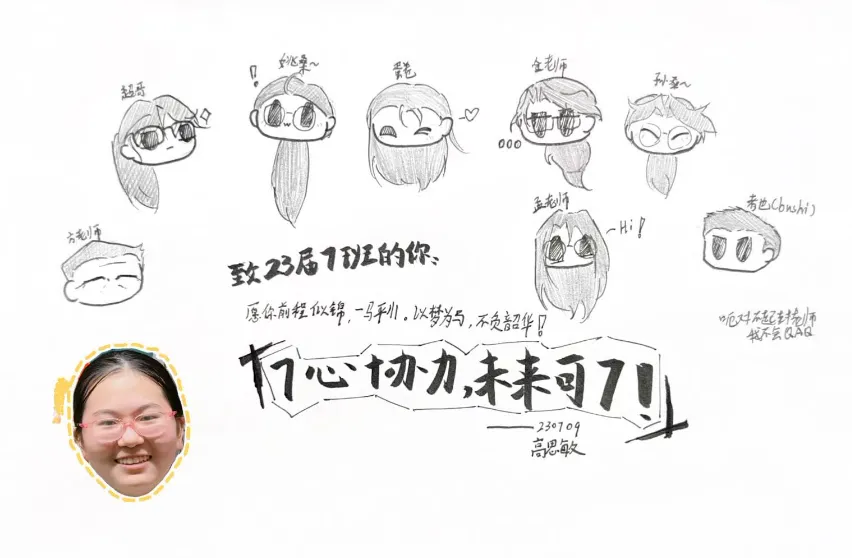 超哥
姚桑~
蛋卷
金老师
孙桑~
方老师
孟老师
~Hi!
老包(bushi)
致23届7班的你:
愿你前程似锦,一马平川。以梦为马,不负韶华!
呃对不起老师
我不会QAQ
「7心协力,未来可7!」
——230709
高思敏